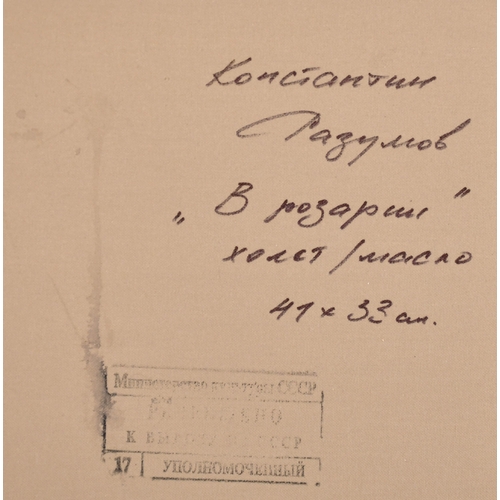 Константин
Разумов
„В розарии"
холст/масло
41 x 33 см.
Министерство культуры СССР
РАЗРЕШЕНО
К ВЫВОЗУ ИЗ СССР
17 УПОЛНОМОЧЕННЫЙ